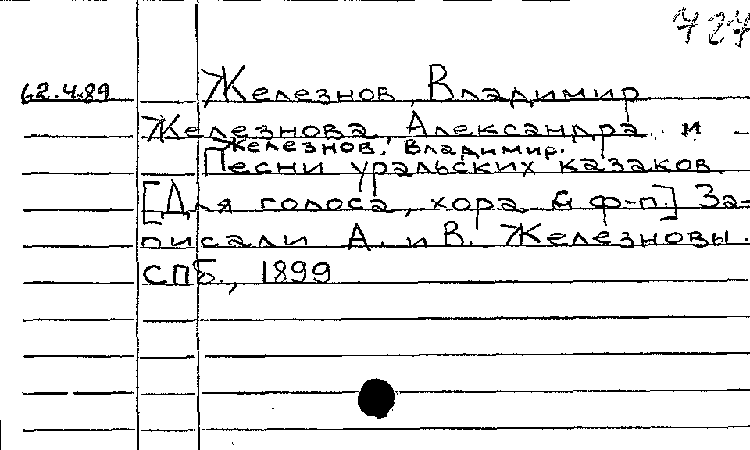 424
62.4.89 Железнов, Владимир
Железнова, Александра и
Железнов, Владимир.
Песни уральских казаков.
[Для голоса, хора с ф-п.] За-
писали А. и В. Железновы.
СПБ., 1899